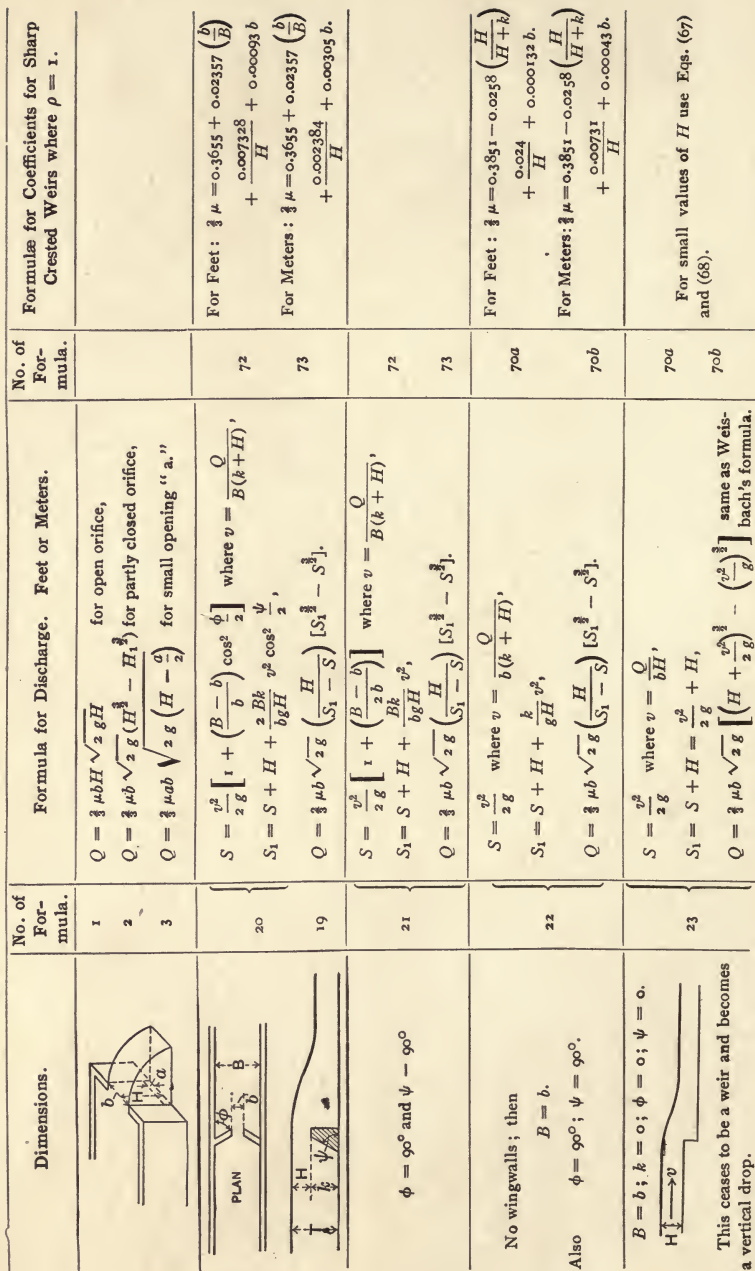 Dimensions.
No. of
For-
mula.
Formula for Discharge. Feet or Meters.
No. of
For-
mula.
Formulæ for Coefficients for Sharp
Crested Weirs where ρ = 1.
b
H
a
1
Q = ⅔ μbH √2 gH for open orifice,
2
Q = ⅔ μb √2 g (H^{3/2} − H₁^{3/2}) for partly closed orifice,
3
Q = ⅔ μab √(2 g (H − a/2)) for small opening “ a.”
PLAN
ϕ
b
B
H
k
ψ
20
S = v²/2 g [1 + ((B − b)/b) cos² ϕ/2] where v = Q/(B(k + H)),
S₁ = S + H + (2 Bk/bgH) v² cos² ψ/2,
19
Q = ⅔ μb √2 g (H/(S₁ − S)) [S₁^{3/2} − S^{3/2}].
72
For Feet : ⅔ μ = 0.3655 + 0.02357 (b/B)
+ 0.007328/H + 0.00093 b
73
For Meters : ⅔ μ = 0.3655 + 0.02357 (b/B)
+ 0.002384/H + 0.00305 b.
ϕ = 90° and ψ − 90°
21
S = v²/2 g [1 + ((B − b)/2 b)] where v = Q/(B(k + H)),
S₁ = S + H + (Bk/bgH) v²,
Q = ⅔ μb √2 g (H/(S₁ − S)) [S₁^{3/2} − S^{3/2}].
72
73
No wingwalls ; then
B = b.
Also ϕ = 90° ; ψ = 90°.
22
S = v²/2 g where v = Q/(b(k + H)),
S₁ = S + H + (k/gH) v²,
Q = ⅔ μb √2 g (H/(S₁ − S)) [S₁^{3/2} − S^{3/2}].
70a
For Feet : ⅔ μ = 0.3851 − 0.0258 (H/(H + k))
+ 0.024/H + 0.000132 b.
70b
For Meters : ⅔ μ = 0.3851 − 0.0258 (H/(H + k))
+ 0.00731/H + 0.00043 b.
B = b ; k = 0 ; ϕ = 0 ; ψ = 0.
H
v
This ceases to be a weir and becomes
a vertical drop.
23
S = v²/2 g where v = Q/bH,
S₁ = S + H = v²/2 g + H,
Q = ⅔ μb √2 g [(H + v²/2 g)^{3/2} − (v²/g)^{3/2}] same as Weis-
bach’s formula.
70a
70b
For small values of H use Eqs. (67)
and (68).